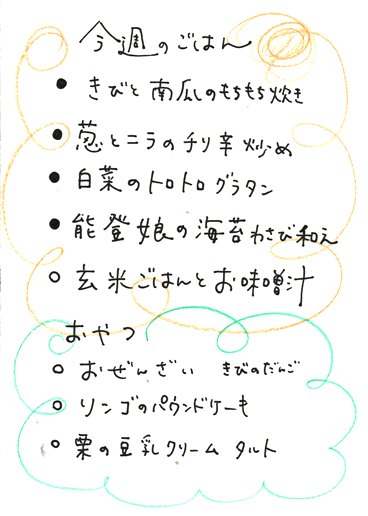 今週のごはん
● きびと南瓜のもちもち炊き
● 葱とニラのチリ辛炒め
● 白菜のトロトログラタン
● 能登娘の海苔わさび和え
○ 玄米ごはんとお味噌汁
おやつ
○ おぜんざい きびのだんご
○ リンゴのパウンドケーキ
○ 栗の豆乳クリーム タルト